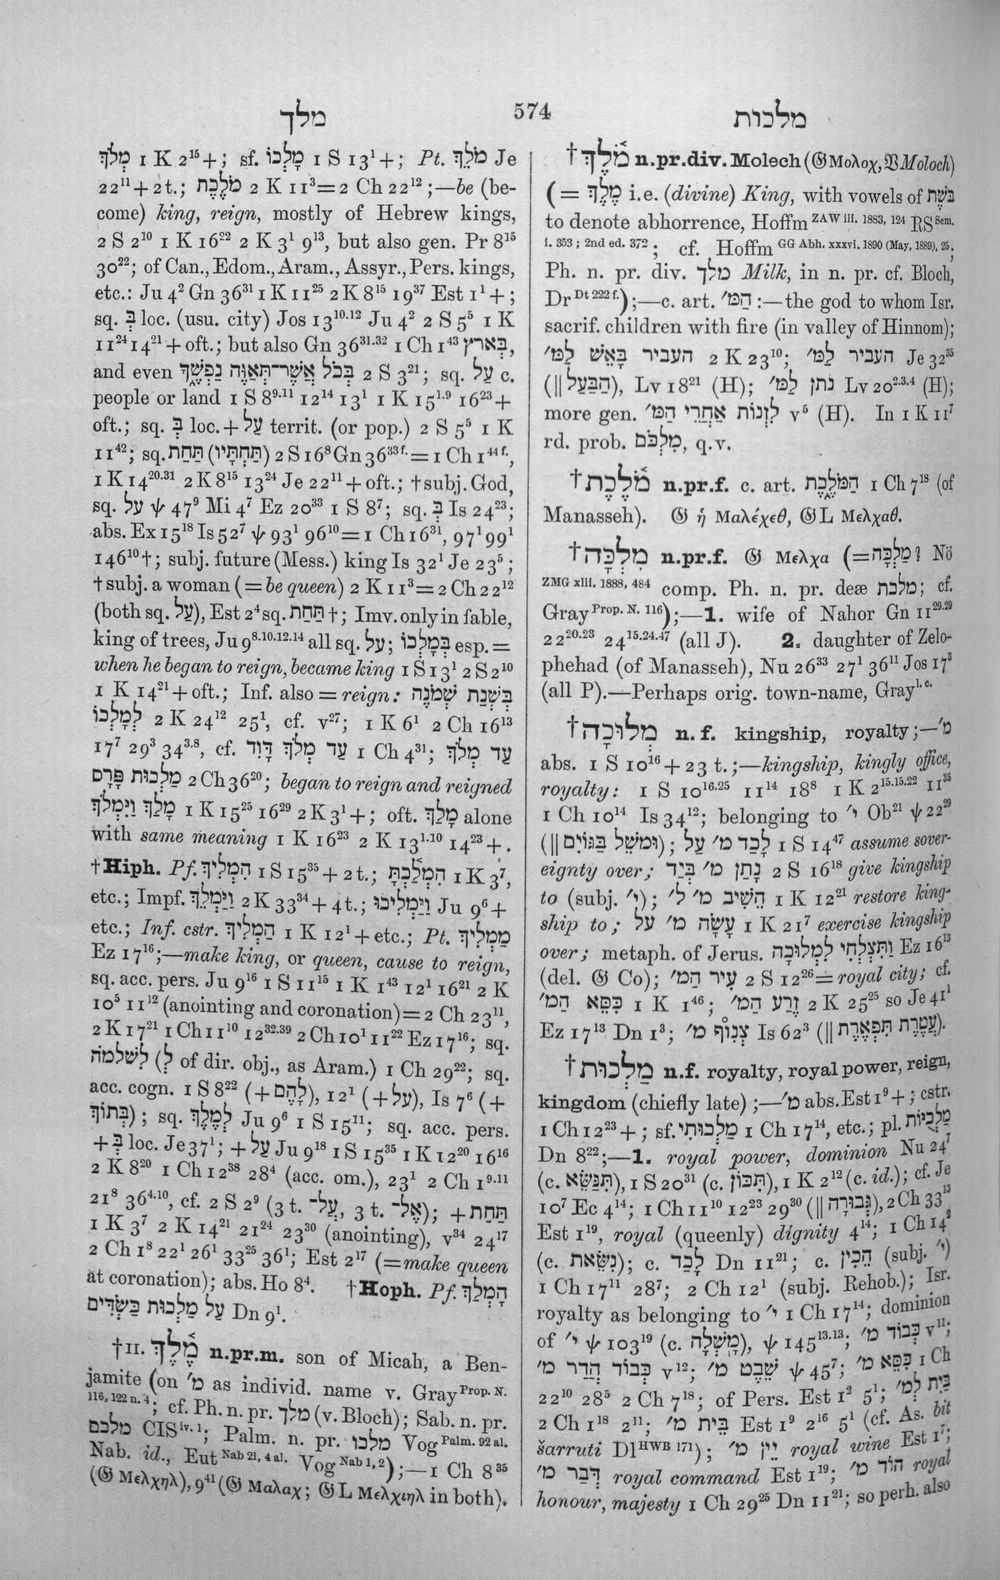 מלך
574
מלכות
מָלְךָ 1 K 2¹⁵+; sf. מָלְכוֹ 1 S 13¹+; Pt. מֹלֵךְ Je
22¹¹+2t.; מֹלֶכֶת 2 K 11³=2 Ch 22¹²;—be (be-
come) king, reign, mostly of Hebrew kings,
2 S 2¹⁰ 1 K 16²² 2 K 3¹ 9¹³, but also gen. Pr 8¹⁵
30²²; of Can., Edom., Aram., Assyr., Pers. kings,
etc.: Ju 4² Gn 36³¹ 1 K 11²⁵ 2 K 8¹⁵ 19³⁷ Est 1¹+;
sq. בְּ loc. (usu. city) Jos 13¹⁰·¹² Ju 4² 2 S 5⁵ 1 K
11²⁴ 14²¹+oft.; but also Gn 36³¹·³² 1 Ch 1⁴³ בְּאֶרֶץ,
and even בְּכֹל אֲשֶׁר־תְּאַוֶּה נַפְשֶׁךָ 2 S 3²¹; sq. עַל c.
people or land 1 S 8⁹·¹¹ 12¹⁴ 13¹ 1 K 15¹·⁹ 16²³+
oft.; sq. בְּ loc.+עַל territ. (or pop.) 2 S 5⁵ 1 K
11⁴²; sq. תַּחַת (תַּחְתָּיו) 2 S 16⁸ Gn 36³³ᶠ·=1 Ch 1⁴⁴ᶠ·,
1 K 14²⁰·³¹ 2 K 8¹⁵ 13²⁴ Je 22¹¹+oft.; †subj. God,
sq. עַל ψ 47⁹ Mi 4⁷ Ez 20³³ 1 S 8⁷; sq. בְּ Is 24²³;
abs. Ex 15¹⁸ Is 52⁷ ψ 93¹ 96¹⁰=1 Ch 16³¹, 97¹ 99¹
146¹⁰†; subj. future (Mess.) king Is 32¹ Je 23⁵;
†subj. a woman (=be queen) 2 K 11³=2 Ch 22¹²
(both sq. עַל), Est 2⁴ sq. תַּחַת†; Imv. only in fable,
king of trees, Ju 9⁸·¹⁰·¹²·¹⁴ all sq. עַל; בְּמָלְכוֹ esp.=
when he began to reign, became king 1 S 13¹ 2 S 2¹⁰
1 K 14²¹+oft.; Inf. also=reign: בִּשְׁנַת שְׁמֹנֶה
לְמָלְכוֹ 2 K 24¹² 25¹, cf. v²⁷; 1 K 6¹ 2 Ch 16¹³
17⁷ 29³ 34³·⁸, cf. עַד מְלֹךְ דָּוִד 1 Ch 4³¹; עַד מְלֹךְ
מַלְכוּת פָּרָס 2 Ch 36²⁰; began to reign and reigned
מָלַךְ וַיִּמְלֹךְ 1 K 15²⁵ 16²⁹ 2 K 3¹+; oft. מָלַךְ alone
with same meaning 1 K 16²³ 2 K 13¹·¹⁰ 14²³+.
†Hiph. Pf. הִמְלִיךְ 1 S 15³⁵+2 t.; הִמְלַכְתָּ 1 K 3⁷,
etc.; Impf. וַיַּמְלֵךְ 2 K 33³⁴+4 t.; וַיַּמְלִיכוּ Ju 9⁶+
etc.; Inf. cstr. הַמְלִיךְ 1 K 12¹+etc.; Pt. מַמְלִיךְ
Ez 17¹⁶;—make king, or queen, cause to reign,
sq. acc. pers. Ju 9¹⁶ 1 S 11¹⁵ 1 K 1⁴³ 12¹ 16²¹ 2 K
10⁵ 11¹² (anointing and coronation)=2 Ch 23¹¹,
2 K 17²¹ 1 Ch 11¹⁰ 12³²·³⁹ 2 Ch 10¹ 11²² Ez 17¹⁶; sq.
לִשְׁלֹמֹה (לְ of dir. obj., as Aram.) 1 Ch 29²²; sq.
acc. cogn. 1 S 8²² (+לָהֶם), 12¹ (+עַל), Is 7⁶ (+
בְּתוֹךְ); sq. לְמֶלֶךְ Ju 9⁶ 1 S 15¹¹; sq. acc. pers.
+בְּ loc. Je 37¹; +עַל Ju 9¹⁸ 1 S 15³⁵ 1 K 12²⁰ 16¹⁶
2 K 8²⁰ 1 Ch 12³⁸ 28⁴ (acc. om.), 23¹ 2 Ch 1⁹·¹¹
21⁸ 36⁴·¹⁰, cf. 2 S 2⁹ (3 t. עַל־, 3 t. אֶל־); +תַּחַת
1 K 3⁷ 2 K 14²¹ 21²⁴ 23³⁰ (anointing), v³⁴ 24¹⁷
2 Ch 1⁸ 22¹ 26¹ 33²⁵ 36¹; Est 2¹⁷ (=make queen
at coronation); abs. Ho 8⁴. †Hoph. Pf. הָמְלַךְ
עַל מַלְכוּת כַּשְׂדִּים Dn 9¹.
†II. מֶ֫לֶךְ n.pr.m. son of Micah, a Ben-
jamite (on מ׳ as individ. name v. Gray Prop. N.
116, 122 n. 4; cf. Ph. n. pr. מלך (v. Bloch); Sab. n. pr.
מלכם CIS iv. 1; Palm. n. pr. מלכו Vog Palm. 92 al.
Nab. id., Eut Nab 21, 4 al. Vog Nab 1, 2);—1 Ch 8³⁵
(𝔊 Μελχηλ), 9⁴¹ (𝔊 Μαλαχ; 𝔊L Μελχιηλ in both).
†מֹ֫לֶךְ n.pr.div. Molech (𝔊 Μολοχ, 𝔙 Moloch)
(= מֶלֶךְ i.e. (divine) King, with vowels of בֹּשֶׁת
to denote abhorrence, Hoffm ZAW iii. 1883, 124 RS Sem.
i. 353; 2nd ed. 372; cf. Hoffm GG Abh. xxxvi. 1890 (May, 1889), 25,
Ph. n. pr. div. מלך Milk, in n. pr. cf. Bloch,
Dr Dt 222 f.);—c. art. הַמּ׳:—the god to whom Isr.
sacrif. children with fire (in valley of Hinnom);
העביר בָּאֵשׁ לַמּ׳ 2 K 23¹⁰; העביר לַמּ׳ Je 32³⁵
(‖ הַבַּעַל), Lv 18²¹ (H); נתן לַמּ׳ Lv 20²·³·⁴ (H);
more gen. לִזְנוֹת אַחֲרֵי הַמּ׳ v⁵ (H). In 1 K 11⁷
rd. prob. מִלְכֹּם, q.v.
†מֹלֶ֫כֶת n.pr.f. c. art. הַמֹּלֶכֶת 1 Ch 7¹⁸ (of
Manasseh). 𝔊 ἡ Μαλέχεθ, 𝔊L Μελχαθ.
†מִלְכָּה n.pr.f. 𝔊 Μελχα (=מַלְכָּה? Nö
ZMG xlii. 1888, 484 comp. Ph. n. pr. deæ מלכת; cf.
Gray Prop. N. 116);—1. wife of Nahor Gn 11²⁹·²⁹
22²⁰·²³ 24¹⁵·²⁴·⁴⁷ (all J). 2. daughter of Zelo-
phehad (of Manasseh), Nu 26³³ 27¹ 36¹¹ Jos 17³
(all P).—Perhaps orig. town-name, Gray l.c.
†מְלוּכָה n. f. kingship, royalty;—מ׳
abs. 1 S 10¹⁶+23 t.;—kingship, kingly office,
royalty: 1 S 10¹⁶·²⁵ 11¹⁴ 18⁸ 1 K 2¹⁵·¹⁵·²² 11³⁵
1 Ch 10¹⁴ Is 34¹²; belonging to י׳ Ob²¹ ψ 22²⁹
(‖ וּמֹשֵׁל בַּגּוֹיִם); לָכַד מ׳ עַל 1 S 14⁴⁷ assume sover-
eignty over; נָתַן מ׳ בְּיַד 2 S 16¹⁸ give kingship
to (subj. י׳); הֵשִׁיב מ׳ לְ׳ 1 K 12²¹ restore king-
ship to; עָשָׂה מ׳ עַל 1 K 21⁷ exercise kingship
over; metaph. of Jerus. וַתִּצְלְחִי לִמְלוּכָה Ez 16¹³
(del. 𝔊 Co); עִיר הַמּ׳ 2 S 12²⁶=royal city; cf.
כִּסֵּא הַמּ׳ 1 K 1⁴⁶; זֶרַע הַמּ׳ 2 K 25²⁵ so Je 41¹
Ez 17¹³ Dn 1³; צְנוֹף מ׳ Is 62³ (‖ עֲטֶרֶת תִּפְאֶרֶת).
†מַלְכוּת n.f. royalty, royal power, reign,
kingdom (chiefly late);—מ׳ abs. Est 1⁹+; cstr.
1 Ch 12²³+; sf. מַלְכוּתִי 1 Ch 17¹⁴, etc.; pl. מַלְכֻיּוֹת
Dn 8²²;—1. royal power, dominion Nu 24⁷
(c. תִּנַּשֵּׂא), 1 S 20³¹ (c. תִּכּוֹן), 1 K 2¹² (c. id.); cf. Je
10⁷ Ec 4¹⁴; 1 Ch 11¹⁰ 12²³ 29³⁰ (‖ גְּבוּרָה), 2 Ch 33¹³,
Est 1¹⁹, royal (queenly) dignity 4¹⁴; 1 Ch 14²
(c. נִשֵּׂאת); c. לָכַד Dn 11²¹; c. הֵכִין (subj. י׳)
1 Ch 17¹¹ 28⁷; 2 Ch 12¹ (subj. Rehob.); Isr.
royalty as belonging to י׳ 1 Ch 17¹⁴; dominion
of י׳ ψ 103¹⁹ (c. מָשָׁלָה), ψ 145¹³·¹³; כְּבוֹד מ׳ v¹¹;
כְּבוֹד הֲדַר מ׳ v¹²; שֵׁבֶט מ׳ ψ 45⁷; כִּסֵּא מ׳ 1 Ch
22¹⁰ 28⁵ 2 Ch 7¹⁸; of Pers. Est 1² 5¹; בֵּית לְמ׳
2 Ch 1¹⁸ 2¹¹; בֵּית מ׳ Est 1⁹ 2¹⁶ 5¹ (cf. As. bît
šarruti Dl HWB 171); יֵין מ׳ royal wine Est 1⁷;
דְּבַר מ׳ royal command Est 1¹⁹; הוֹד מ׳ royal
honour, majesty 1 Ch 29²⁵ Dn 11²¹; so perh. also